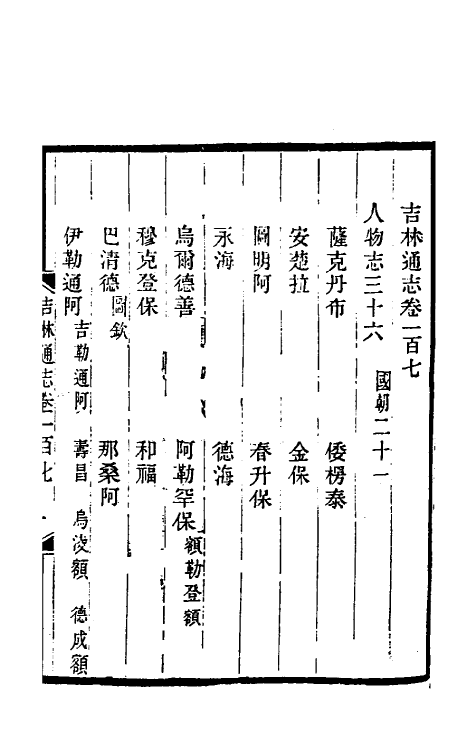 吉林通志卷一百七
人物志三十六 國朝二十一
薩克丹布 倭楞泰
安楚拉 金保
圖明阿 春升保
永海 德海
烏爾德善 阿勒罕保 額勒登額
穆克登保 和福
巴清德 圖欽 那桑阿
伊勒通阿 吉勒通阿 壽昌 烏淩額 德成額
吉林通志卷一百七 一